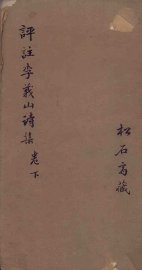 評註李義山詩集 卷下
松石齋藏